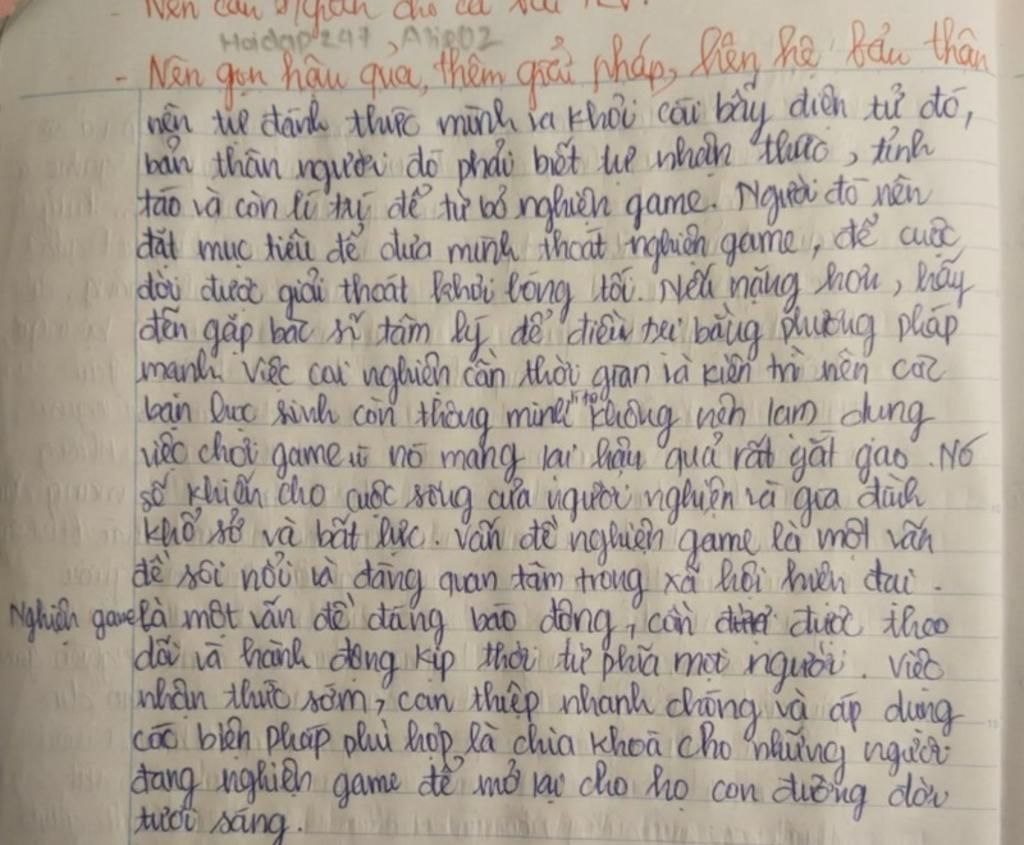 - Nên cân
Hoidap247
- Nên gọn hậu quả, thêm giải pháp, liên hệ bản thân
nên tự đánh thức mình ra khỏi cái bẫy điện tử đó,
bản thân người đó phải biết tự nhận thức, tỉnh
táo và còn lí trí để từ bỏ nghiện game. Người đó nên
đặt mục tiêu để đưa mình thoát nghiện game, để cuộc
đời được giải thoát khỏi bóng tối. Nếu nặng hơn, hãy
đến gặp bác sĩ tâm lý để điều trị bằng phương pháp
mạnh. Việc cai nghiện cần thời gian và kiên trì nên các
bạn học sinh còn thông minh không nên lạm dụng
việc chơi game vì nó mang lại hậu quả rất gắt gao. Nó
sẽ khiến cho cuộc sống của người nghiện và gia đình
khổ sở và bất lực. Vấn đề nghiện game là một vấn
đề sôi nổi và đáng quan tâm trong xã hội hiện đại.
Nghiện game là một vấn đề đáng báo động, cần được theo
dõi và hành động kịp thời từ phía mọi người. Việc
nhận thức sớm, can thiệp nhanh chóng và áp dụng
các biện pháp phù hợp là chìa khoá cho những người
đang nghiện game để mở lại cho họ con đường đời
tươi sáng.